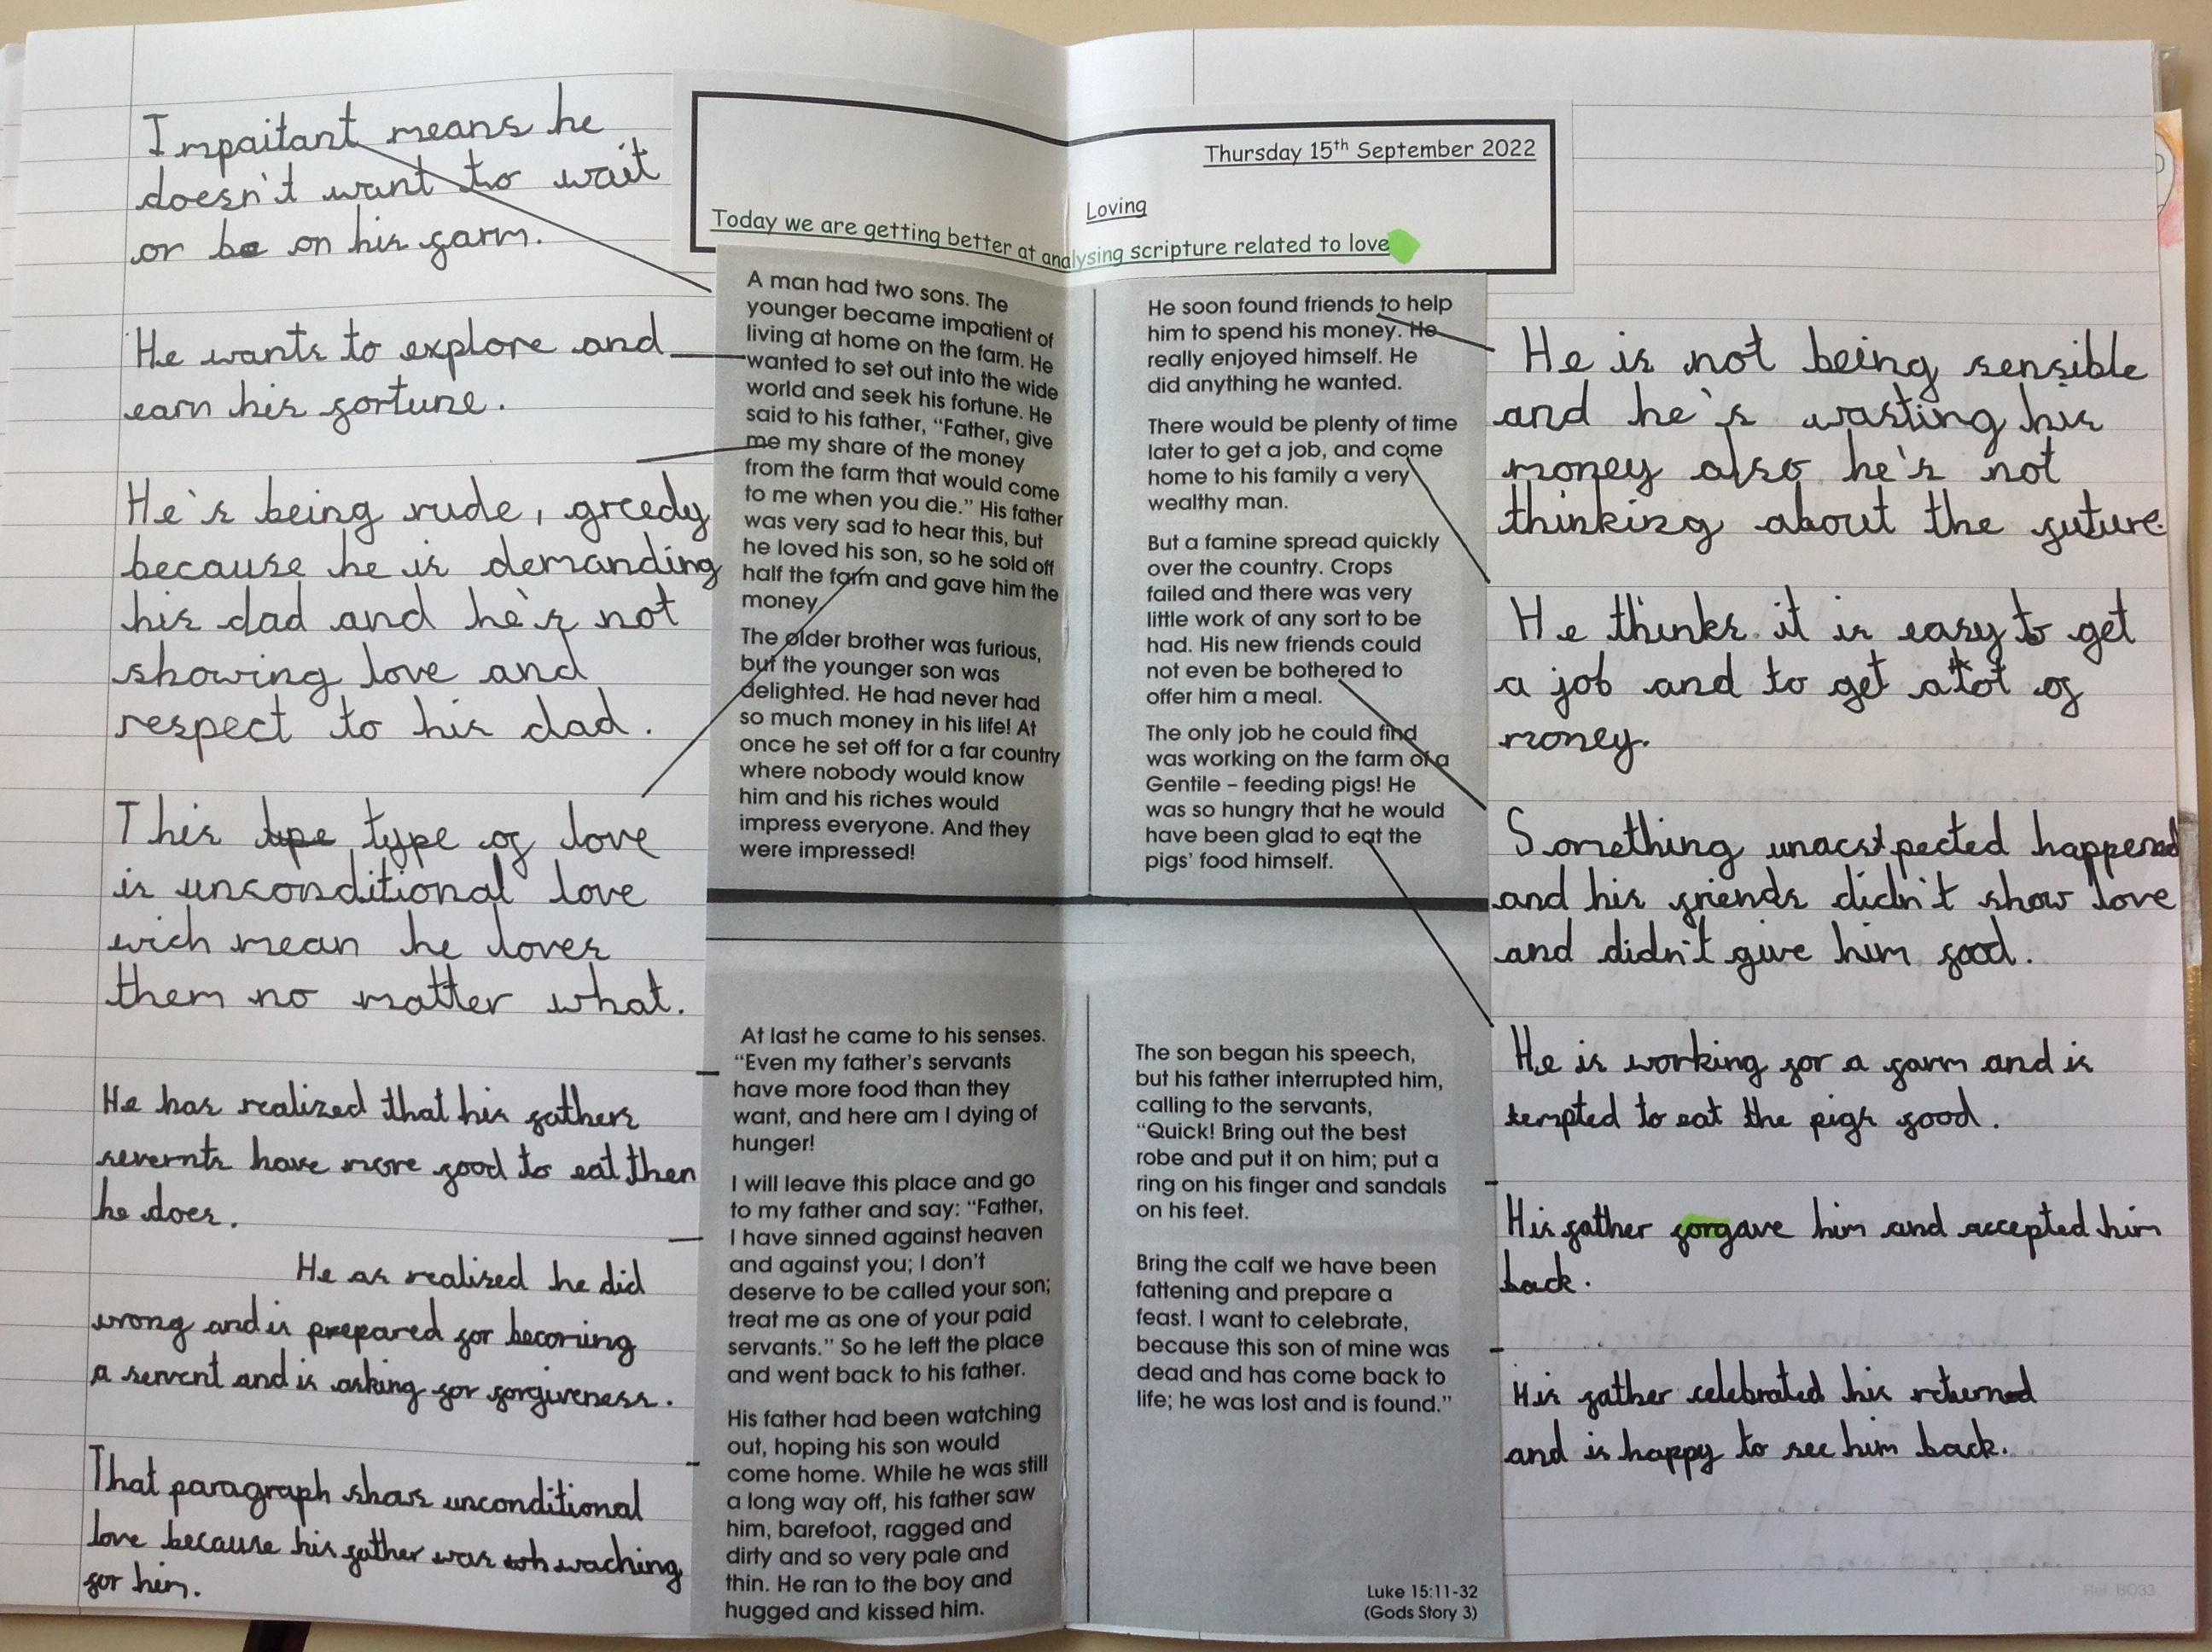 Impaitant means he
doesn't want to wait
or be on his farm.
He wants to explore and
earn his fortune.
He's being rude, greedy
because he is demanding
his dad and he's not
showing love and
respect to his dad.
This type of love
is unconditional love
wich mean he loves
them no matter what.
He has realized that his fathers
severnts have more food to eat then
he does.
He as realised he did
wrong and is prepared for becoming
a servent and is asking for forgiveness.
That paragraph shows unconditional
love because his father was waching
for him.
Thursday 15th September 2022
Loving
Today we are getting better at analysing scripture related to love
A man had two sons. The
younger became impatient of
living at home on the farm. He
wanted to set out into the wide
world and seek his fortune. He
said to his father, “Father, give
me my share of the money
from the farm that would come
to me when you die.” His father
was very sad to hear this, but
he loved his son, so he sold off
half the farm and gave him the
money.
The older brother was furious,
but the younger son was
delighted. He had never had
so much money in his life! At
once he set off for a far country
where nobody would know
him and his riches would
impress everyone. And they
were impressed!
He soon found friends to help
him to spend his money. He
really enjoyed himself. He
did anything he wanted.
There would be plenty of time
later to get a job, and come
home to his family a very
wealthy man.
But a famine spread quickly
over the country. Crops
failed and there was very
little work of any sort to be
had. His new friends could
not even be bothered to
offer him a meal.
The only job he could find
was working on the farm of a
Gentile – feeding pigs! He
was so hungry that he would
have been glad to eat the
pigs’ food himself.
At last he came to his senses.
“Even my father’s servants
have more food than they
want, and here am I dying of
hunger!
I will leave this place and go
to my father and say: “Father,
I have sinned against heaven
and against you; I don’t
deserve to be called your son;
treat me as one of your paid
servants.” So he left the place
and went back to his father.
His father had been watching
out, hoping his son would
come home. While he was still
a long way off, his father saw
him, barefoot, ragged and
dirty and so very pale and
thin. He ran to the boy and
hugged and kissed him.
The son began his speech,
but his father interrupted him,
calling to the servants,
“Quick! Bring out the best
robe and put it on him; put a
ring on his finger and sandals
on his feet.
Bring the calf we have been
fattening and prepare a
feast. I want to celebrate,
because this son of mine was
dead and has come back to
life; he was lost and is found.”
Luke 15:11-32
(Gods Story 3)
He is not being sensible
and he's wasting his
money also he's not
thinking about the future.
He thinks it is easy to get
a job and to get a lot of
money.
Something unacxtpected happened
and his friends didn't show love
and didn't give him food.
He is working for a farm and is
tempted to eat the pigs food.
His father forgave him and accepted him
back.
His father celebrated his returned
and is happy to see him back.
Ref. BO33